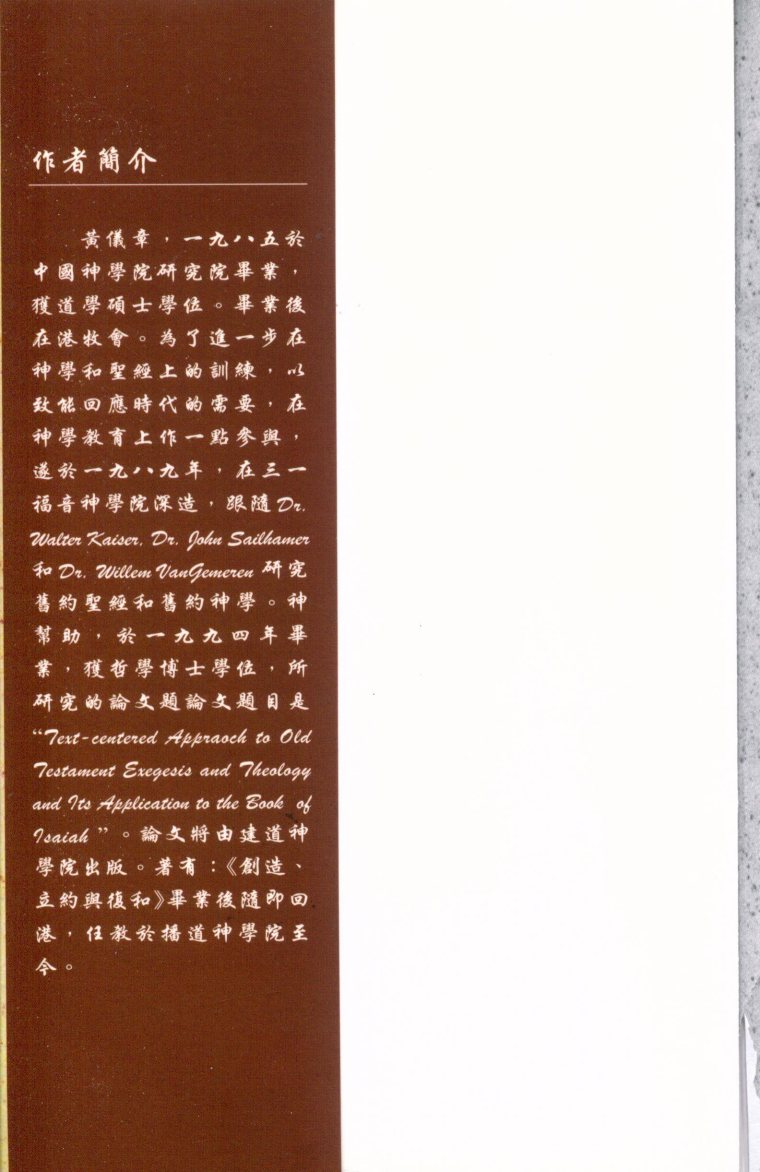 作者簡介
黃儀章，一九八五於
中國神學院研究院畢業，
獲道學碩士學位。畢業後
在港牧會。為了進一步在
神學和聖經上的訓練，以
致能回應時代的需要，在
神學教育上作一點參與，
遂於一九八九年，在三一
福音神學院深造，跟隨Dr.
Walter Kaiser, Dr. John Sailhamer
和Dr. Willem VanGemeren 研究
舊約聖經和舊約神學。神
幫助，於一九九四年畢
業，獲哲學博士學位，所
研究的論文題論文題目是
“Text-centered Appraoch to Old
Testament Exegesis and Theology
and Its Application to the Book of
Isaiah”。論文將由建道神
學院出版。著有：《創造、
立約與復和》畢業後隨即回
港，任教於播道神學院至
今。